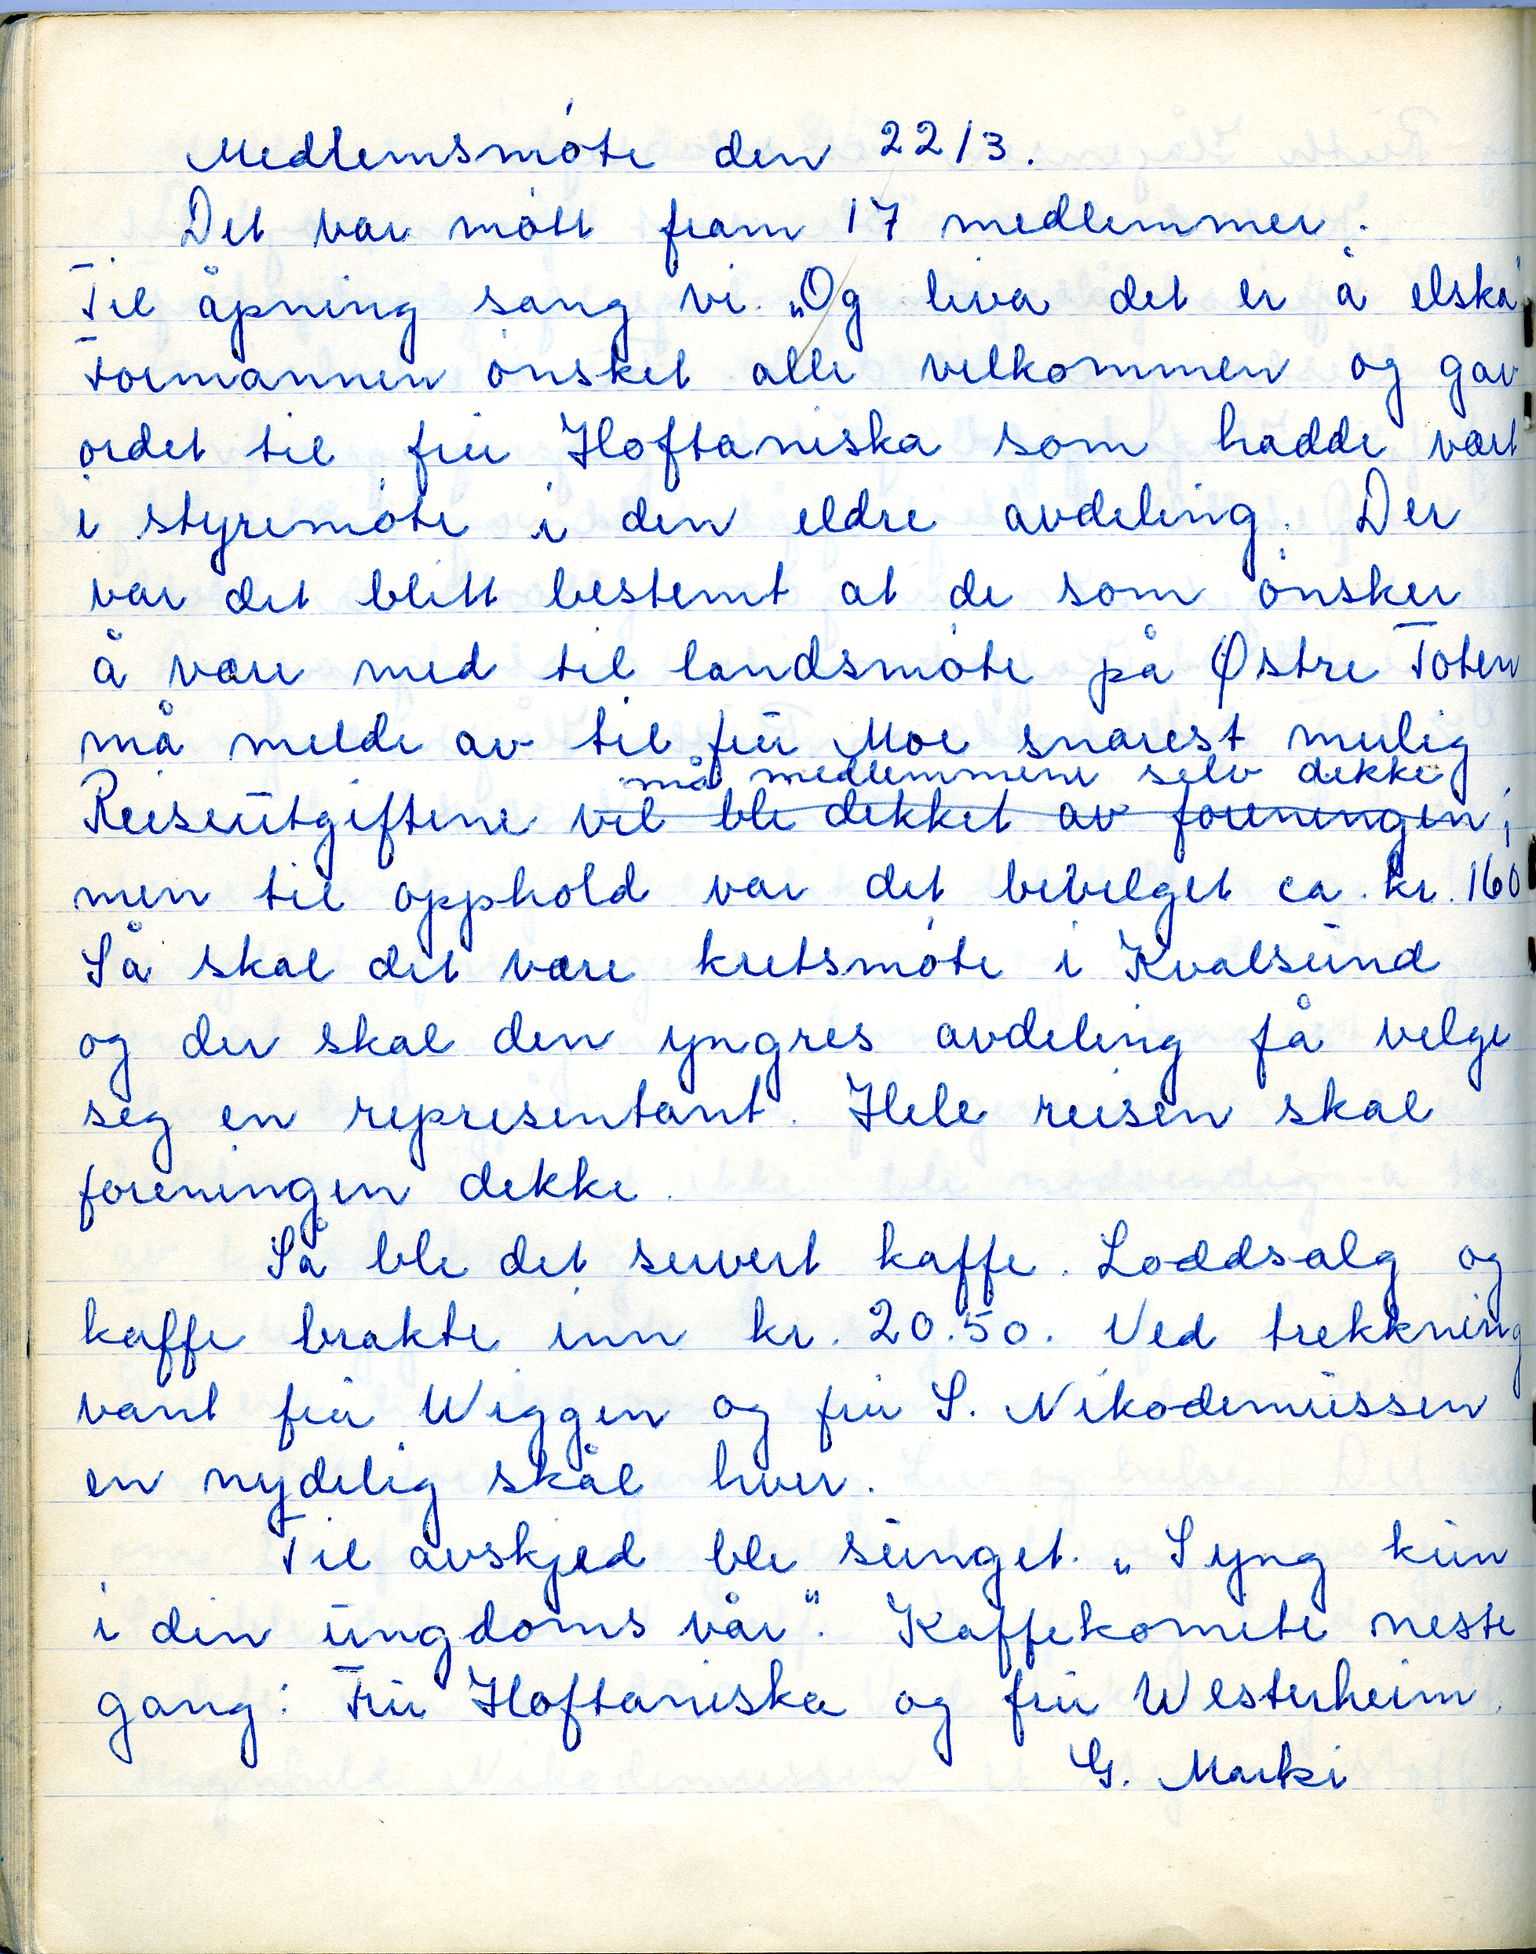 Medlemsmøte den 22/3.
Det var møtt fram 17 medlemmer.
Til åpning sang vi „Og liva det er å elska"
Formannen ønsket alle velkommen og gav
ordet til fru Hoftaniska som hadde vært
i styremøte i den eldre avdeling. Der
var det blitt bestemt at de som ønsker
å være med til landsmøte på Østre Toten
må melde av til fru Moe snarest mulig
må medlemmene selv dekke
Reiseutgiftene vil bli dekket av foreningen;
men til opphold var det bevilget ca. kr. 160
Så skal det være kretsmøte i Kvalsund
og der skal den yngres avdeling få velge
seg en representant. Hele reisen skal
foreningen dekke.
Så ble det servert kaffe. Loddsalg og
kaffe brakte inn kr. 20.50. Ved trekkning
vant fru Wiggen og fru S. Nikodemussen
en nydelig skål hver.
Til avskjed ble sunget „Syng kun
i din ungdoms vår". Kaffekomite neste
gang: Fru Hoftaniska og fru Westerheim.
G. Marki